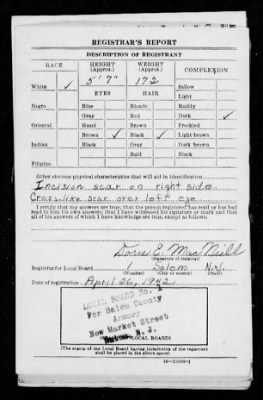 REGISTRAR'S REPORT
DESCRIPTION OF REGISTRANT
RACE HEIGHT (Approx.) WEIGHT (Approx.) COMPLEXION
5' 7" 172
White ✓ EYES HAIR Sallow
Light
Negro Blue Blonde Ruddy
Gray Red Dark ✓
Oriental Hazel Brown Freckled
Brown ✓ Black ✓ Light brown
Indian Black Gray Dark brown
Bald Black
Filipino
Other obvious physical characteristics that will aid in identification
Incision scar on right side
Crosslike scar over left eye
I certify that my answers are true; that the person registered has read or has had
read to him his own answers; that I have witnessed his signature or mark and that
all of his answers of which I have knowledge are true, except as follows:
Doris E. MacNeill
(Signature of registrar)
Registrar for Local Board Salem N.J.
(Number) (City or county) (State)
Date of registration April 26, 1942
LOCAL BOARD No. 1
For Salem County
Armory
New Market Street
N. J.
LOCAL BOARD)
(The stamp of the Local Board having jurisdiction of the registrant
shall be placed in the above space.)